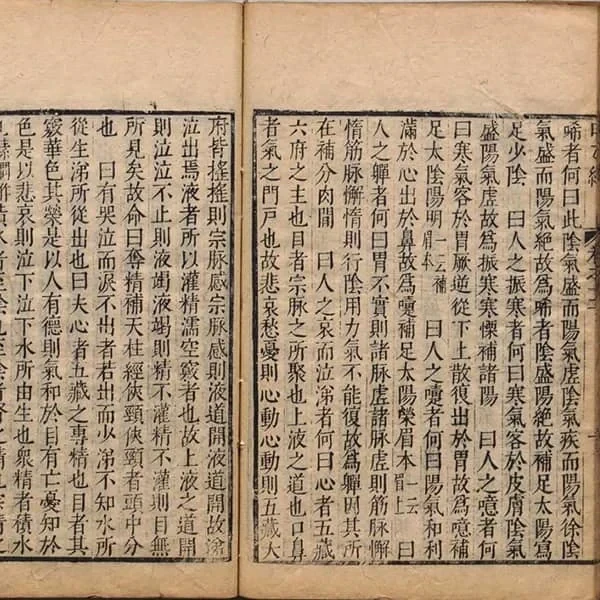 唏者何曰此陰氣盛而陽氣虛陰氣疾而陽氣徐陰
氣盛而陽氣絕故爲唏者陰盛陽絕故補足太陽寫
足少陰　曰人之振寒者何曰寒氣客於皮膚陰氣
盛陽氣虛故爲振寒寒慄補諸陽　曰人之噫者何
曰寒氣客於胃厥逆從下上散復出於胃故爲噫補
足太陰陽明一云補眉本　曰人之嚏者何曰陽氣和利
滿於心出於鼻故爲嚏補足太陽榮眉本一云眉上　曰
人之嚲者何曰胃不實則諸脉虛諸脉虛則筋脉懈
惰筋脉懈惰則行陰用力氣不能復故爲嚲因其所
在補分肉間　曰人之哀而泣涕者何曰心者五藏
六府之主也目者宗脉之所聚也上液之道也口鼻
者氣之門戶也故悲哀愁憂則心動心動則五藏大
府皆搖搖則宗脉感宗脉感則液道開液道開故涕
泣出焉液者所以灌精濡空竅者也故上液之道開
則泣泣不止則液竭液竭則精不灌精不灌則目無
所見矣故命曰奪精補天柱經俠頸俠頸者頭中分
也　曰有哭泣而淚不出者若出而少涕不知水所
從生涕所從出也曰夫心者五藏之專精也目者其
竅華色其榮是以人有德則氣和於目有亡憂知於
色是以悲哀則泣下泣下水所由生也衆精者積水